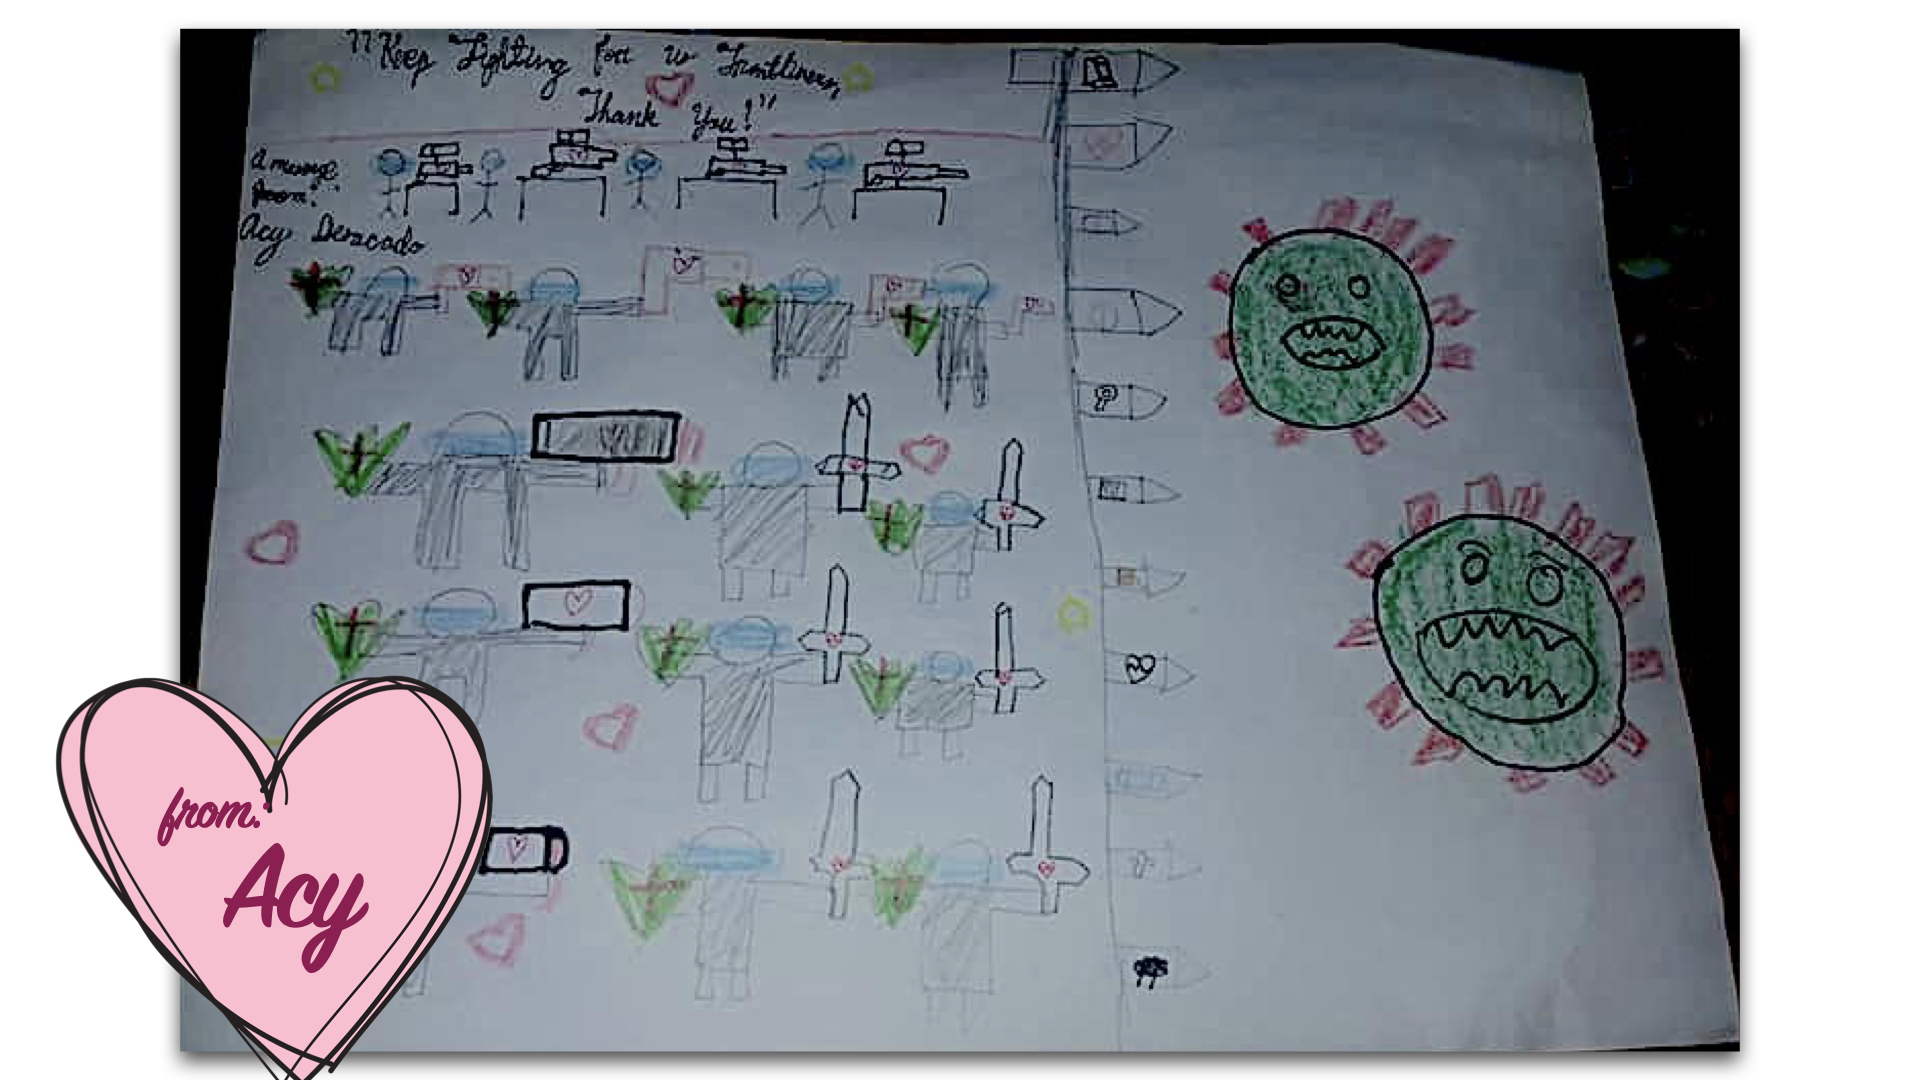 "Keep Fighting for us Frontliners,
Thank You!"
A message
from:
Acy Deracado
from:
Acy